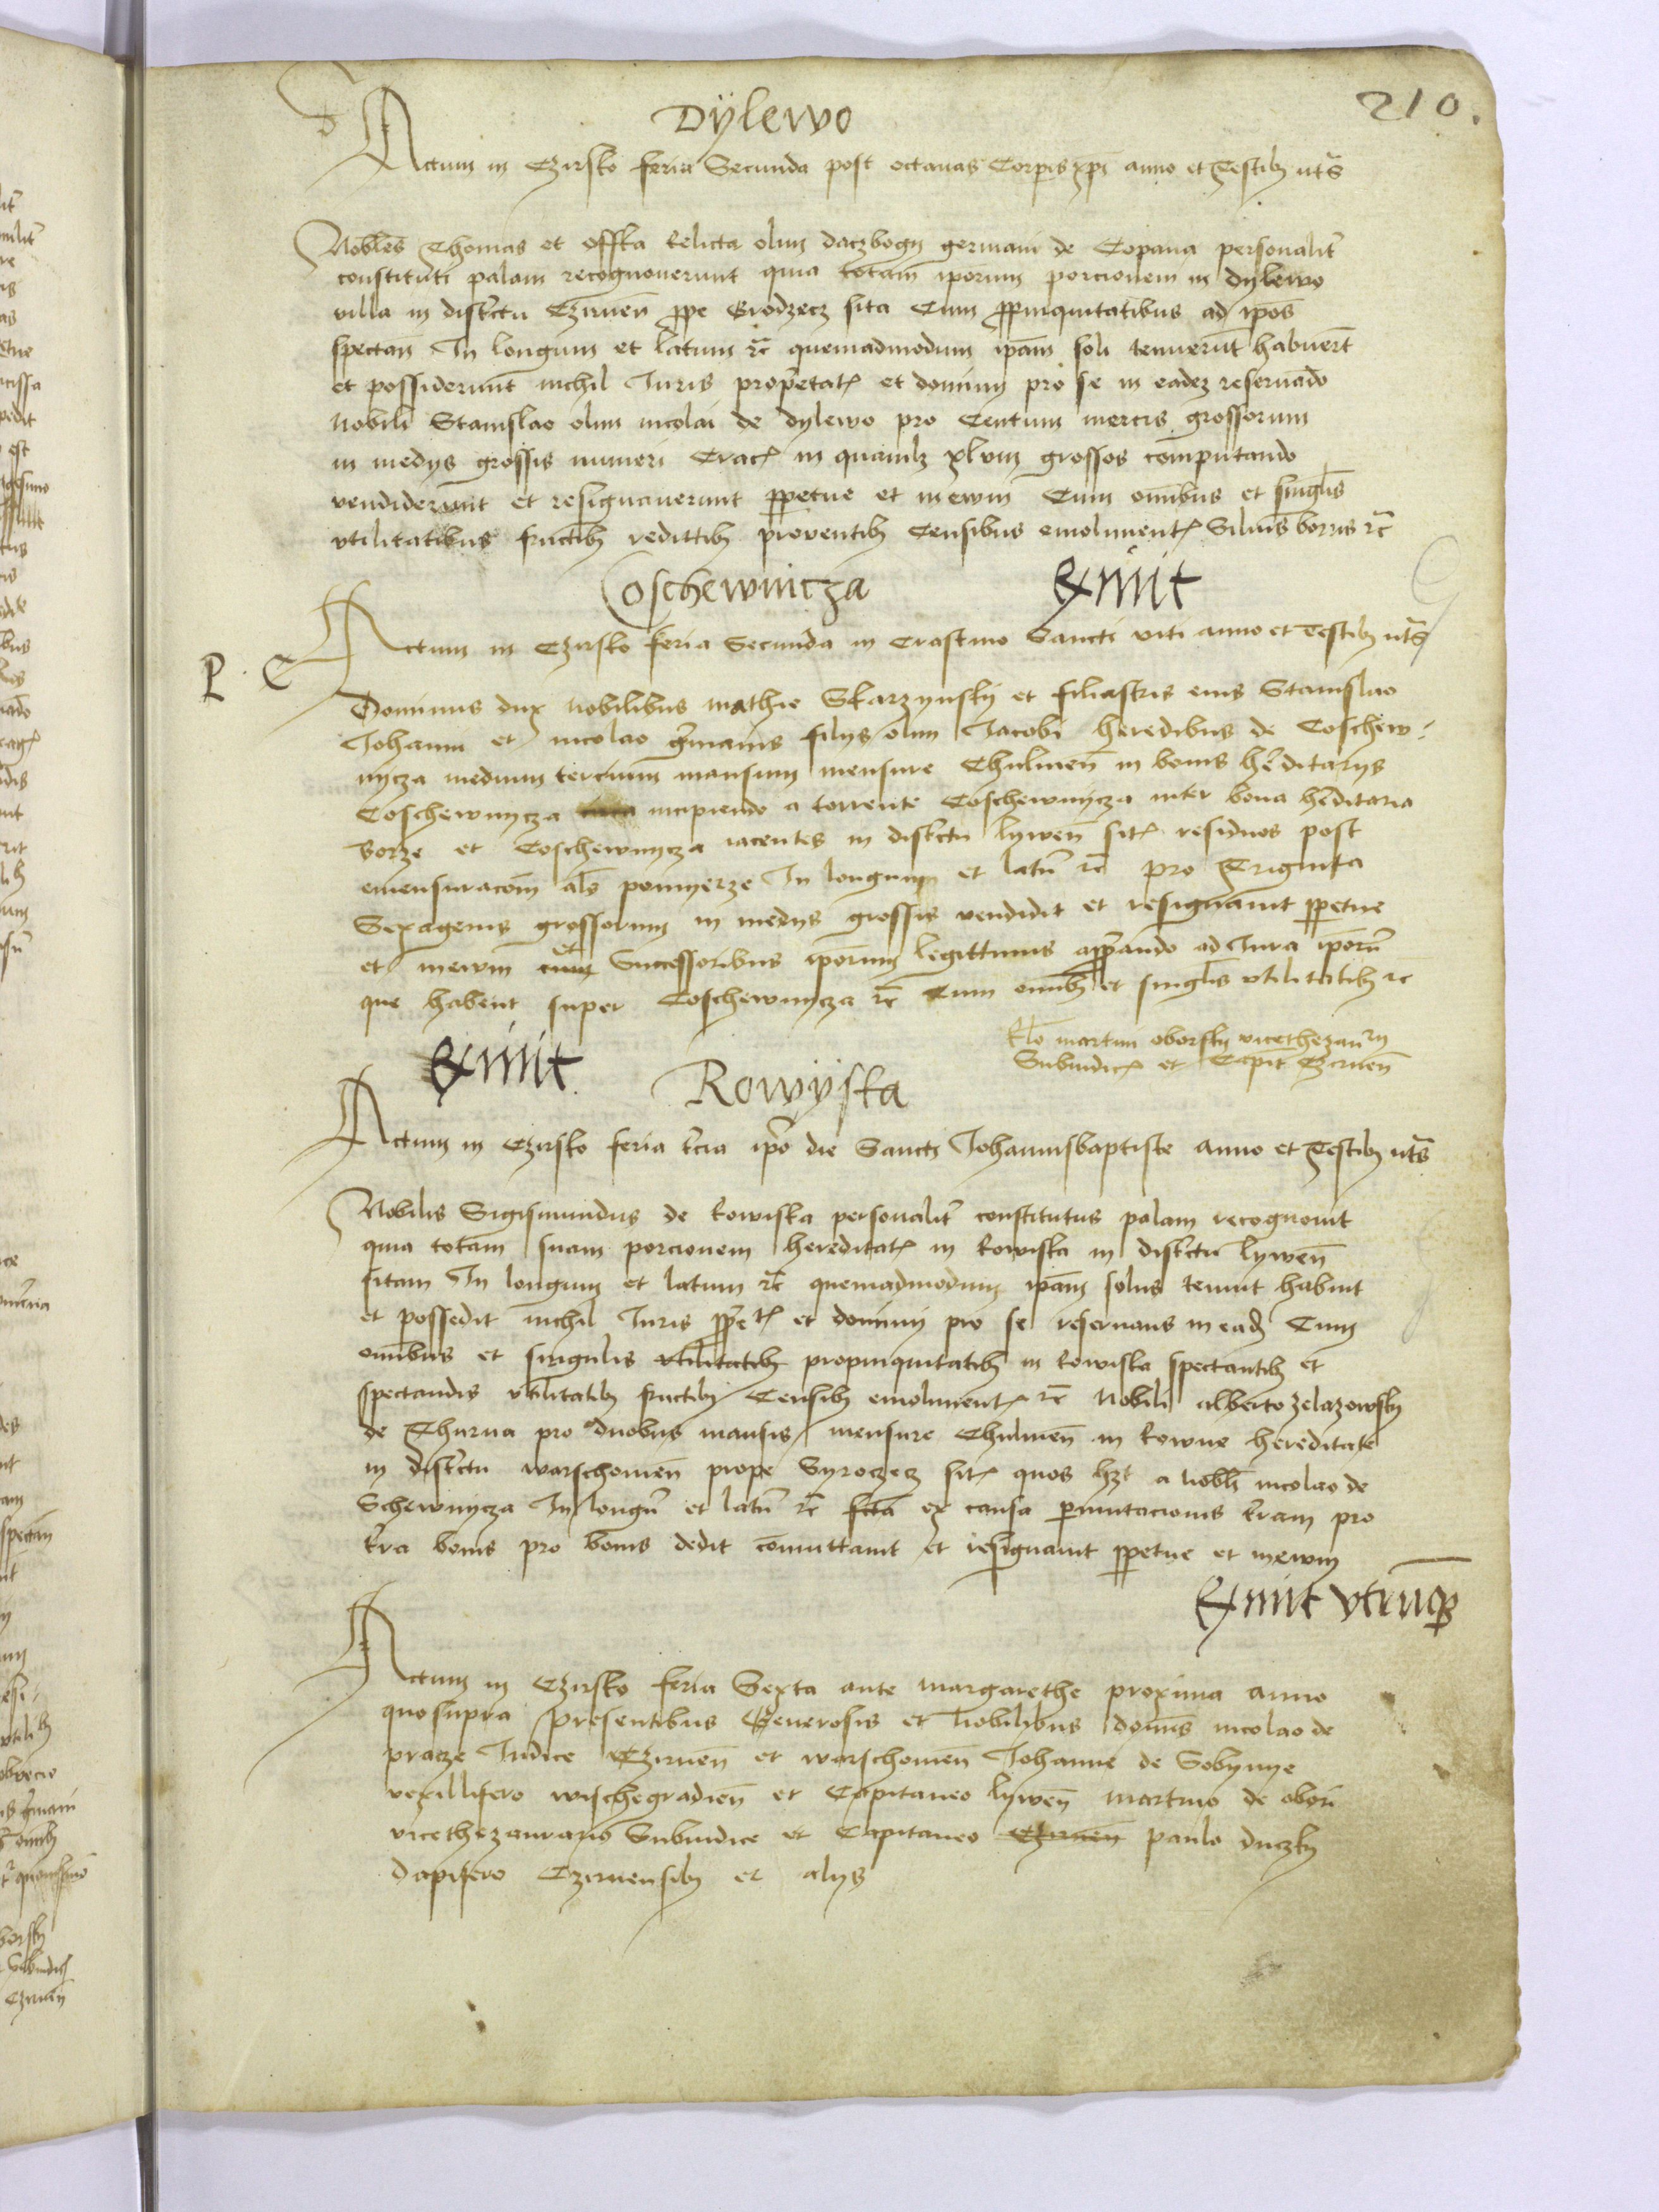 210.
Dÿlewo
Actum in Czirsko feria Secunda post octauas Corpis xpi anno et Testibȝ uts
Nobiles Thomas et Offka Relicta olim daczbogy germani de Copana personalit
constituti palam recognouerunt quia totam iporum porcionem in dylewo
villa in districtu Czirnen ppe Grodzecz sita Cum ppinquitatibus ad ipos
spectan In longum et latum rc quemadmodum ipam soli tenuerunt habuert
et possiderunt nichil Juris proprietatꝭ et dominij pro se in eadez reseruado
Nobili Stanislao olim nicolai de dylewo pro Centum mercis grossorum
in medijs grossis numeri Cracꝭ in quamlȝ xlviij grossos computando
vendiderunt et resignauerunt ppetue et in ewm Cum omibus et singlis
vtilitatibus fructibȝ redittibȝ prouentibȝ Censibus emolimentꝭ Siluis borris rc
Coschewnicza exiuit
Actum in Czirsko feria Secunda in Crastino Sancti viti anno et Testibȝ uts
P. C
Dominus dux nobilibus mathie Skarzynsky et filiastris eius Stanislao
Johanni et nicolao germanis filijs olim Jacobi heredibus de Coschew-
nycza medium tercium mansum mensure Chulmen in bonis hereditarijs
Coschewnycza incipiendo a torrente Coschewnycza inter bona hereditaria
borze et Coschewnycza iacentes in districtu lywen sitꝭ residuos post
emensuracoem als pomyerze In longum et latu rc pro Triginta
Sexagenis grossorum in medijs grossis vendidit et resignauit ppetue
et in ewm cum et Successoribus iporum legittimis apprando ad Jura iporu
que habent super Coschewnycza rc Cum omibȝ et singlis vtilitatibȝ rc
Rlo martini oborsky vicethezaurij
Subiudicꝭ et Capit Czirnen
exiuit.
Rowÿska
Actum in Czirsko feria tercia ipo die Sancti Johannisbaptiste anno et Testibȝ uts
Nobilis Sigismundus de Rowiska personalit constitutus palam recognouit
quia totam suam porcionem hereditatꝭ in Rowiska in districtu lywen
sitam In longum et latum rc quemadmodum ipam solus tenuit habuit
et possedit nichil Juris pprietꝭ et dominij pro se reseruans in eadȝ Cum
omibus et singulis vtilitatibȝ propinquitatibȝ in Rowiska spectantibȝ et
spectandis vtilitatibȝ fructibȝ Censibȝ emolimentꝭ rc Nobili alberto zelazowsky
de Thurna pro duobus mansis mensure Chulmen in Rowne hereditate
in districtu warschouien prope Syroczecz sitꝭ quos hȝt a nobli nicolao de
Schewnycza In longu et latu rc fcta ex causa permutacionis terram pro
terra bonis pro bonis dedit comuttauit et resignauit ppetue et in ewm
Exiuit vtrinqȝ
Actum in Czirsko feria Sexta ante margarethe proxima anno
quo supra presentibus Generosis et nobilibus dominis nicolao de
pracze Judice Czirnen et warschouien Johanne de Sobynye
vexillifero wischegradien et Capitaneo lywen martino de obori
vicethezaurario Subiudice et Capitaneo Czirnen paulo duczky
dapifero Czirnensibȝ et alijs